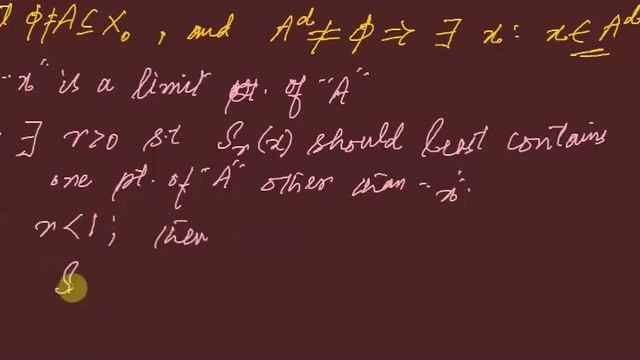 ϕ ≠ A ⊆ X₀ , and Aᵈ ≠ ϕ ⇒ ∃ x : x ∈ Aᵈ
"x" is a limit pt. of "A"
∃ r>0 s.t Sᵣ(x) should least contains
one pt. of "A" other than "x".
r < 1 ; then
S